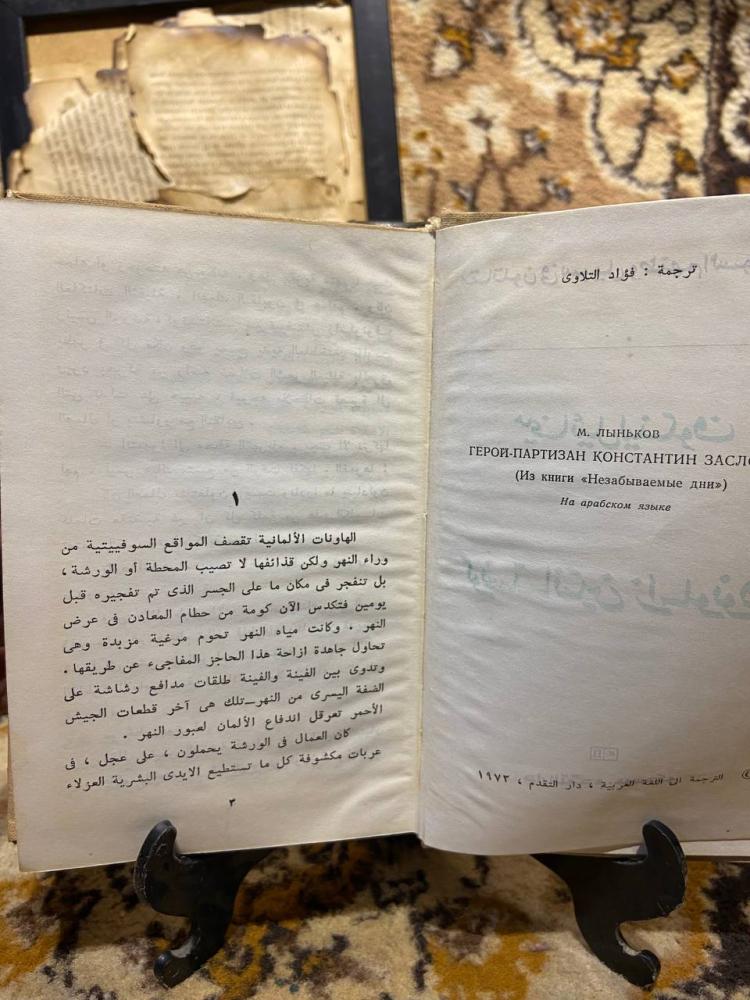 ترجمة : فؤاد التلاوى
М. ЛЫНЬКОВ
ГЕРОЙ-ПАРТИЗАН КОНСТАНТИН ЗАСЛО
(Из книги «Незабываемые дни»)
На арабском языке
© الترجمة الى اللغة العربية ، دار التقدم ، ١٩٧٣
١
الهاونات الألمانية تقصف المواقع السوفييتية من
وراء النهر ولكن قذائفها لا تصيب المحطة أو الورشة ،
بل تنفجر فى مكان ما على الجسر الذى تم تفجيره قبل
يومين فتكدس الآن كومة من حطام المعادن فى عرض
النهر . وكانت مياه النهر تحوم مرغية مزبدة وهى
تحاول جاهدة ازاحة هذا الحاجز المفاجىء عن طريقها .
وتدوى بين الفينة والفينة طلقات مدافع رشاشة على
الضفة اليسرى من النهر—تلك هى آخر قطعات الجيش
الأحمر تعرقل اندفاع الألمان لعبور النهر .
كان العمال فى الورشة يحملون ، على عجل ، فى
عربات مكشوفة كل ما تستطيع الايدى البشرية العزلاء
٣